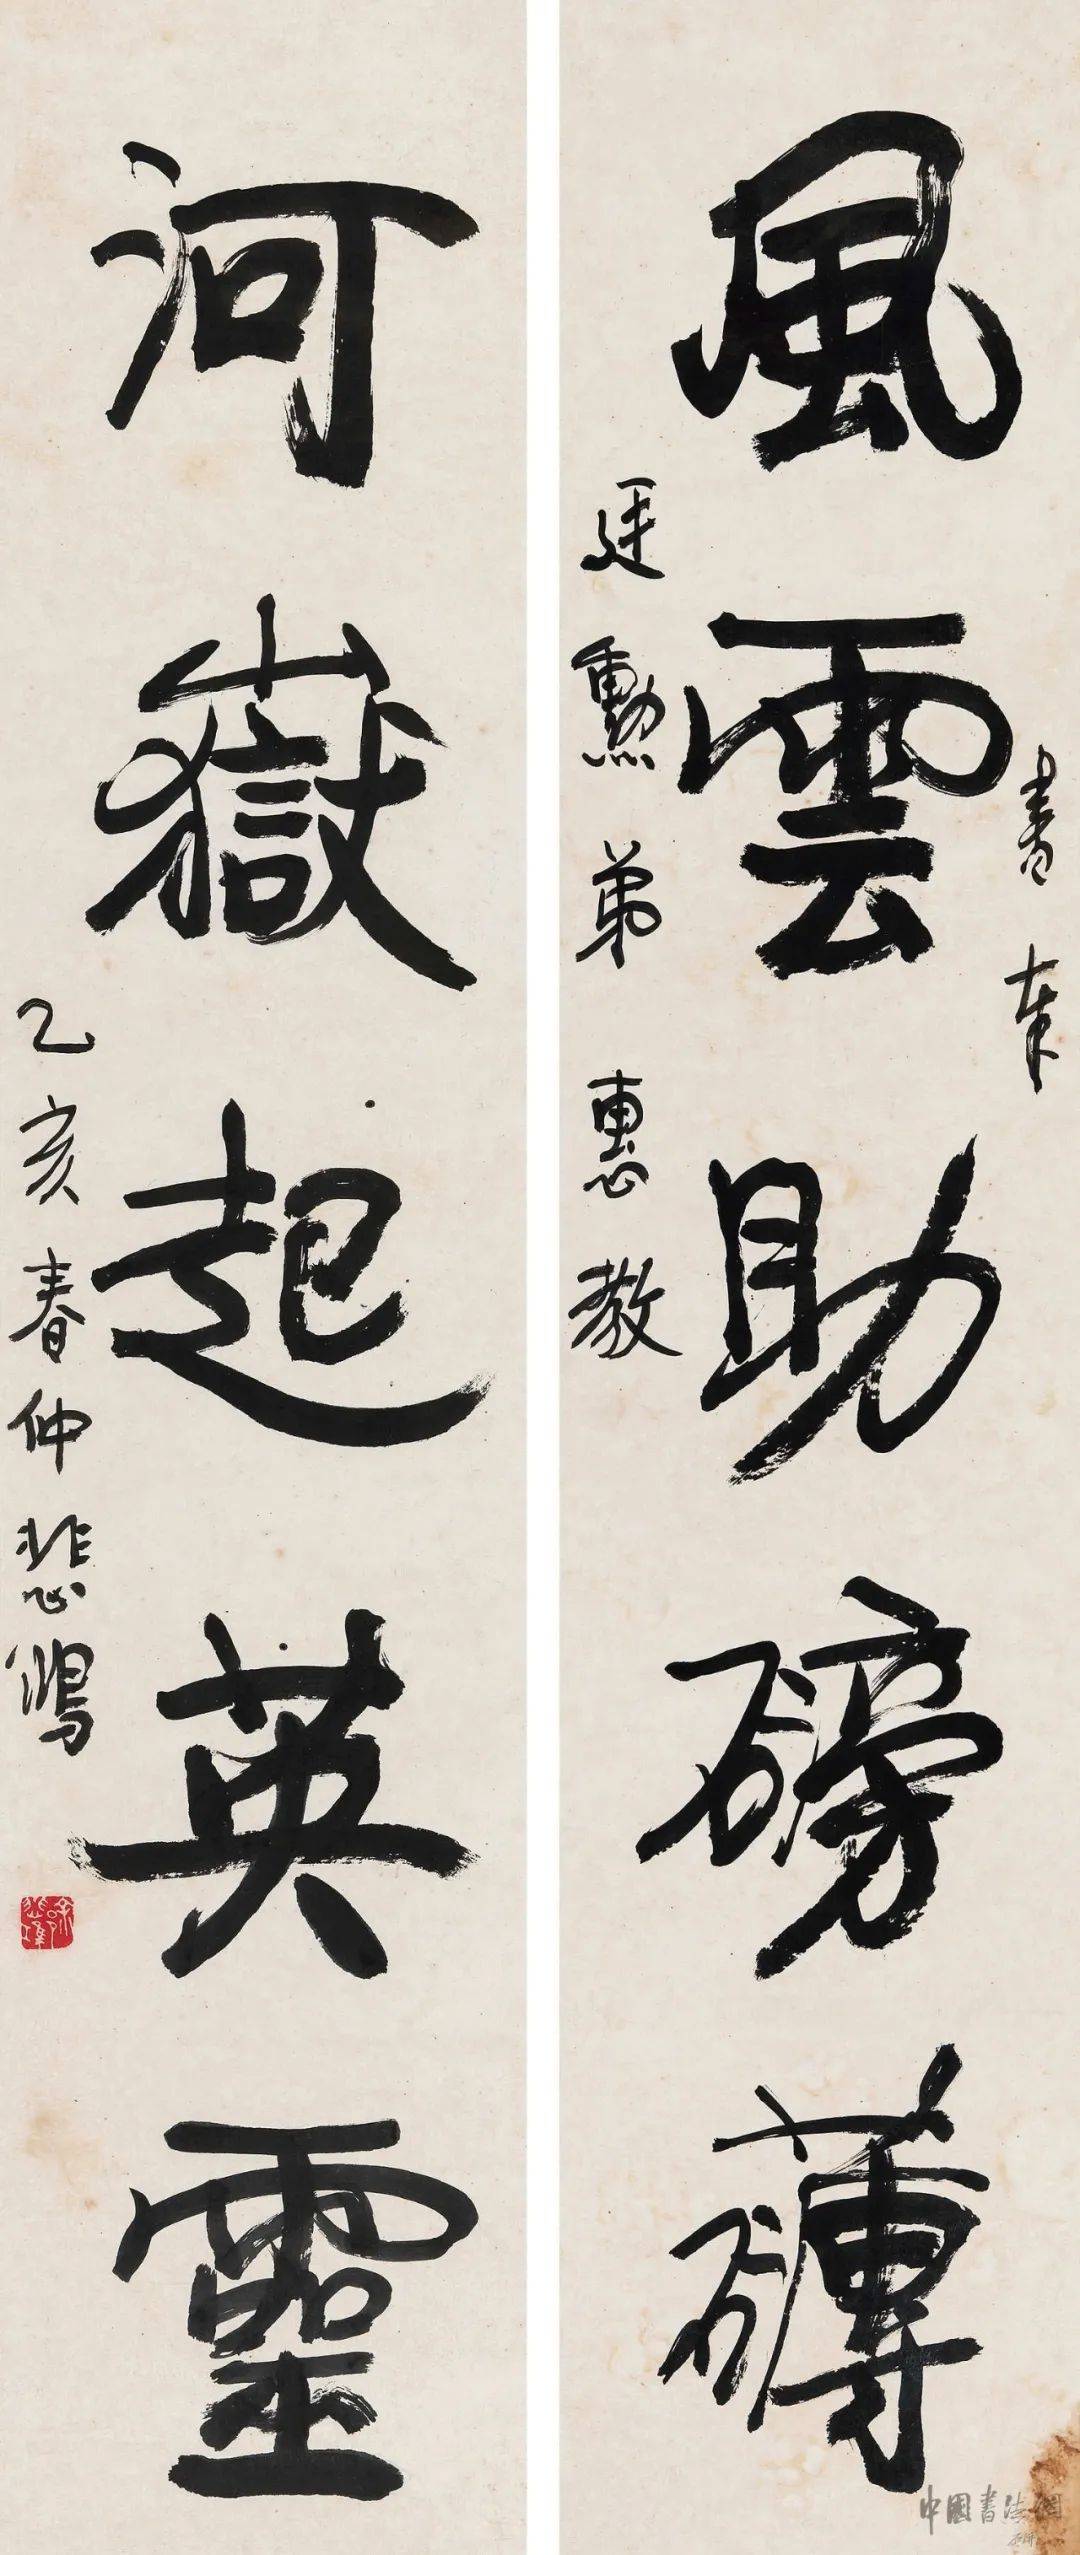 書奉
風雲助磅礴
廷勳弟惠教
河嶽起英靈
乙亥春仲悲鴻
中國書法網